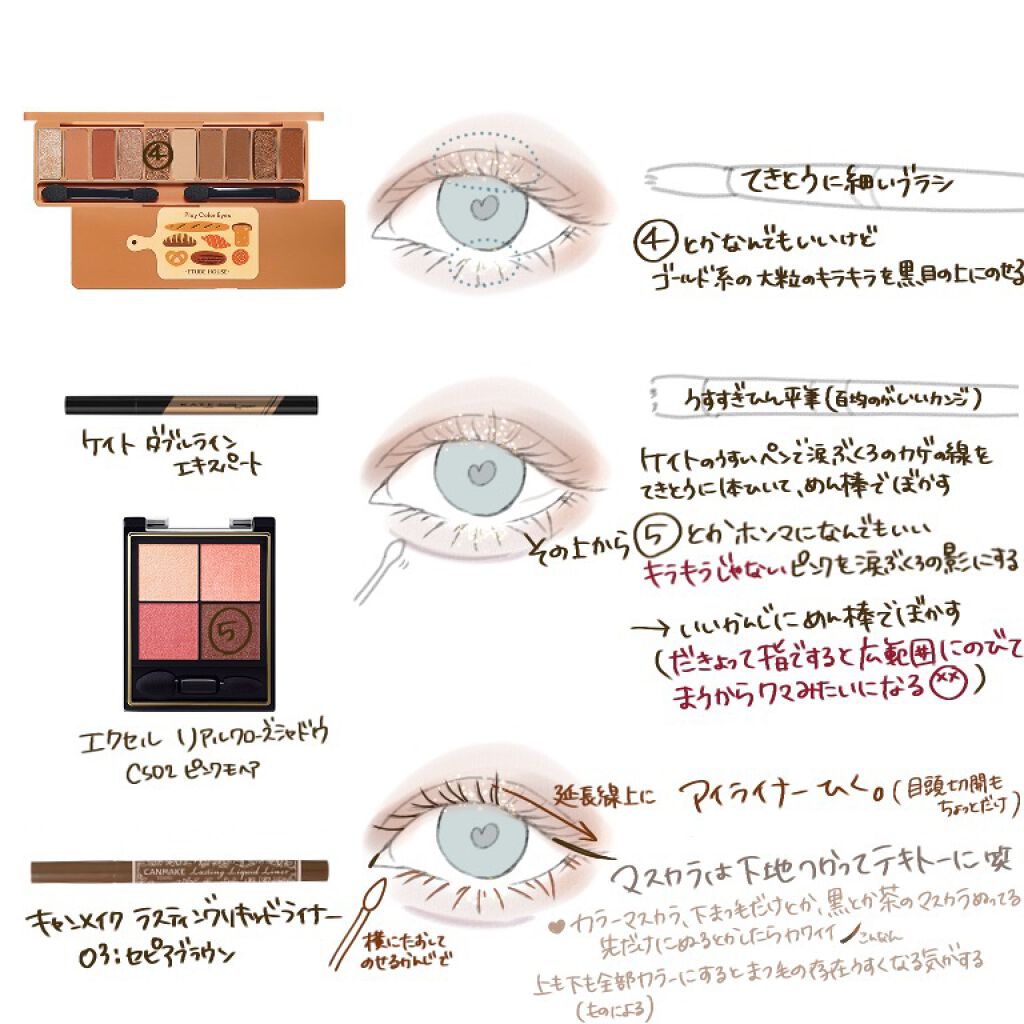 ④
Play Color Eyes
ETUDE HOUSE
てきとうに細いブラシ
④とかなんでもいいけど
ゴールド系の大粒のキラキラを黒目の上にのせる
KATE
ケイト ダブルライン
エキスパート
うすすぎひん平筆(百均のがいいカンジ)
ケイトのうすいペンで涙ぶくろのカゲの線を
てきとうに1本ひいて、めん棒でぼかす
その上から⑤とかホンマになんでもいい
キラキラじゃないピンクを涙ぶくろの影にする
→いいかんじにめん棒でぼかす
(だきょって指ですると広範囲にのびて
まうからクマみたいになる××)
⑤
エクセル リアルクローズシャドウ
CS02 ピンクモヘア
延長線上に アイライナーひく。(目頭切開も
ちょっとだけ)
CANMAKE Lasting Liquid Liner
キャンメイク ラスティングリキッドライナー
03:セピアブラウン
横にたおして
のせるかんじで
マスカラは下地つかってテキトーに笑
♥カラーマスカラ、下まつ毛だけとか、黒とか茶のマスカラぬってる
先だけにぬるとかしたらカワイイ こんなん
上も下も全部カラーにするとまつ毛の存在うすくなる気がする
(ものによる)